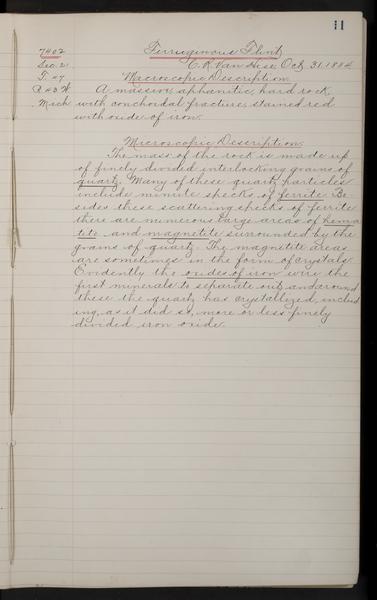 11
7402 Ferruginous Flint
Sec. 21 C. R. Van Hise, Oct 31, 1884
T. 47 Macroscopic Description.
R 43 W A massive, aphanitic, hard rock
Mich with conchoidal fracture; stained red
with oxide of iron.
Microscopic Description.
The mass of the rock is made up
of finely divided interlocking grains of
quartz. Many of these quartz particles
include minute specks of ferrite. Be
sides these scattering specks of ferrite
there are numerous large areas of hema
tite and magnetite surrounded by the
grains of quartz. The magnetite areas
are sometimes in the form of crystals.
Evidently the oxides of iron were the
first minerals to separate out, and around
these the quartz has crystallized, includ
ing, as it did so, more or less finely
divided iron oxide.